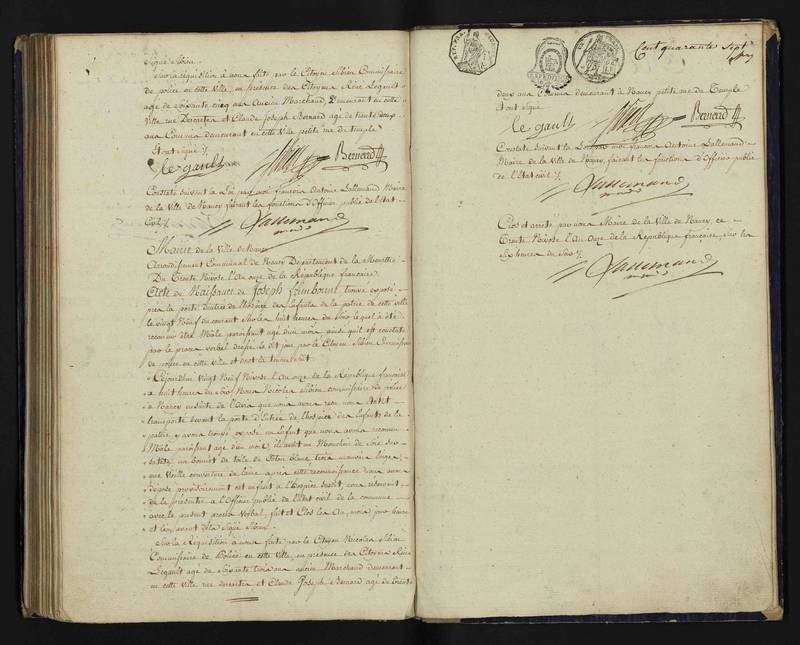 Signé Sibien.
Sur la réquisition à nous faite par le Citoyen Sibien Commissaire
de police en cette Ville, en présence des Citoyens René Legault
agé de soixante cinq ans ancien Marchand, Demeurant en cette
Ville rue Descartes et Claude Joseph Bernard agé de trente deux
ans Couvreur demeurant en cette Ville petite rue du temple
et ont signé
le gault Bernard
Constaté suivant la Loi par moi françois Antoine Lallemand Maire
de la Ville de Nancy faisant les fonctions d'Officier public de l'Etat
Civil
Lallemand
Mairie de la Ville de Nancy
Arrondissement Communal de Nancy Département de la Meurthe
Du trente Nivose l'An onze de la République française
Acte de Naissance de Joseph trouvé exposé
près la porte d'entrée de l'hospice des Enfants de la patrie de cette ville
le vingt Neuf du courant sur les huit heures du soir lequel a été
reconnu être Mâle paroissant agé d'un mois ainsi qu'il est constaté
par le procès verbal dressé le dit jour par le Citoyen Sibien Commissaire
de police en cette Ville et dont la teneur suit
Cejourd'hui vingt Neuf Nivose l'An onze de la République française
à huit heures du soir Nous Nicolas Sibien commissaire de police
à Nancy ensuite de l'avis que nous avons reçu nous étant
transporté devant la porte d'Entrée de l'hospice des Enfants de la
patrie y avons trouvé exposé un Enfant que nous avons reconnu
Mâle paroissant agé d'un mois, il avoit un Mouchoir de Soie sur
sa tête, un bonnet de toile de Coton bleue trois mauvais linges
une Vieille couverture de laine après cette reconnoissance nous avons
déposé provisoirement cet enfant à l'hospice susdit, nous réservant
de le présenter à l'Officier public de l'Etat civil de la commune
avec le present procès verbal, fait et Clos les an, mois, jour heure
et lieu avant dits Signé Sibien.
Sur la Réquisition à nous faite par le Citoyen Nicolas Sibien
Commissaire de Police en cette Ville, en présence des Citoyens René
Legault agé de soixante trois ans ancien Marchand demeurant
en cette Ville rue descartes et Claude Joseph Bernard agé de trente
Cent quarante Sept
deux ans Couvreur demeurant à Nancy petite rue du Temple
et ont signé
le gault Bernard
Constaté suivant la Loi par moi françois Antoine Lallemand
Maire de la Ville de Nancy, faisant les fonctions d'Officier public
de l'Etat civil
Lallemand
Clos et arrêté par nous Maire de la Ville de Nancy, ce
Trente Nivose l'An Onze de la République française, sur les
Six heures du Soir
Lallemand